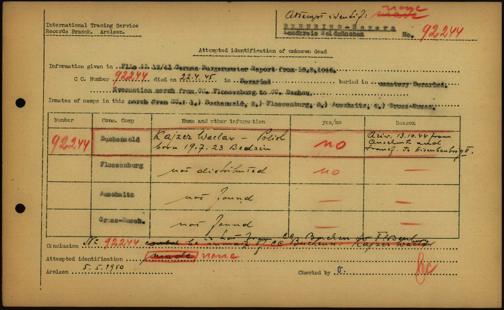 International Tracing Service
Records Branch. Arolsen.
Attempt identif. none
No. 92,244
Attempted identification of unknown dead
Information given in File 12 32/41 German Burgermeister Report from 18.9.1946.
C C. Number 92244 died on 22.4.45 in buried in cemetery
Evacuation march from CC. Flossenburg to CC. Dachau.
Inmates of camps in this march from CC.: 1.) Buchenwald, 2.) Flossenburg, 3.) Auschwitz, 4.) Gross-Rosen.
Number Conc. Camp Name and other information yes/no Reason
92244 Buchenwald Kajzer Waclaw - Polish born 19.7.23 Bedzin no Arriv. 13.10.44 from Auschwitz and transf. to
Flossenburg not distributed no —
Auschwitz not found — —
Gross-Rosen. not found — —
Conclusion No. 92244
Attempted identification made none
Arolsen 5.5.1950 Checked by